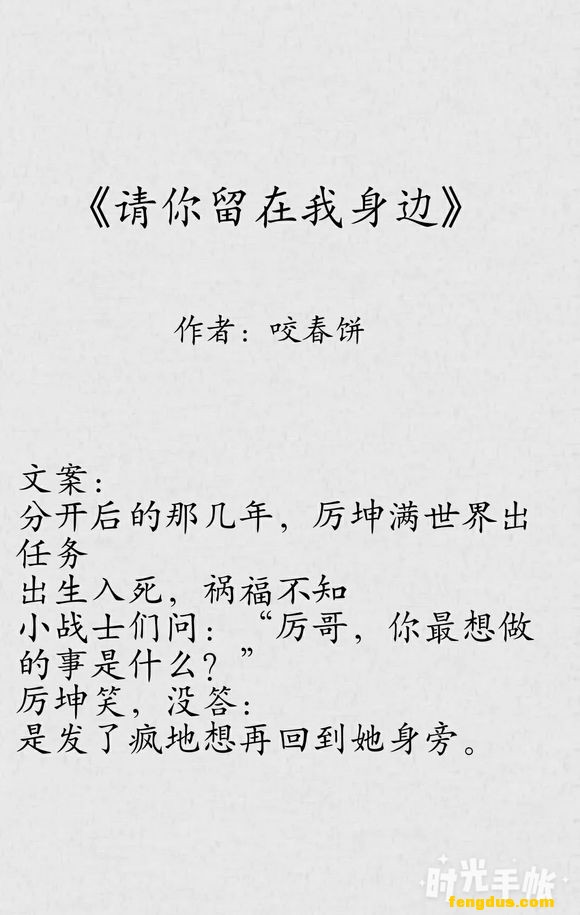 《请你留在我身边》
作者：咬春饼
文案：
分开后的那几年，厉坤满世界出
任务
出生入死，祸福不知
小战士们问：“厉哥，你最想做
的事是什么？”
厉坤笑，没答：
是发了疯地想再回到她身旁。
时光手帐
fengdus.com